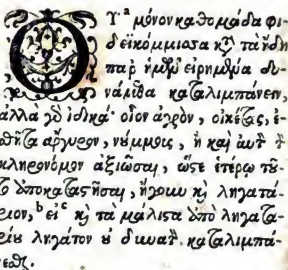 ΟΥ ᵃ μόνον καθομάδα φι-
δεϊκόμμισσα κỳ τὰ ἤδη
παρ ἡμῶν εἰρημένα δυ-
νάμεθα καταλιμπάνειν,
ἀλλὰ γὸ ἰδικά· οἷον ἀγρὸν, οἰκέτας, ἐ-
σθῆτα ἄργυρον, νύμμους, ἢ καὶ αὐτὸν τὸν
κληρονόμον ἀξιῶσαι, ὥστε ἑτέρῳ τῦ-
το ἀποκαταστῆσαι, ἤγουν κỳ ληγατά-
ριον, ᵇ εἰ ᶜ κỳ τὰ μάλιστα ἀπὸ ληγατα-
ρίου ληγάτον οὐ δύναται καταλιμπά-
νεσθαι.